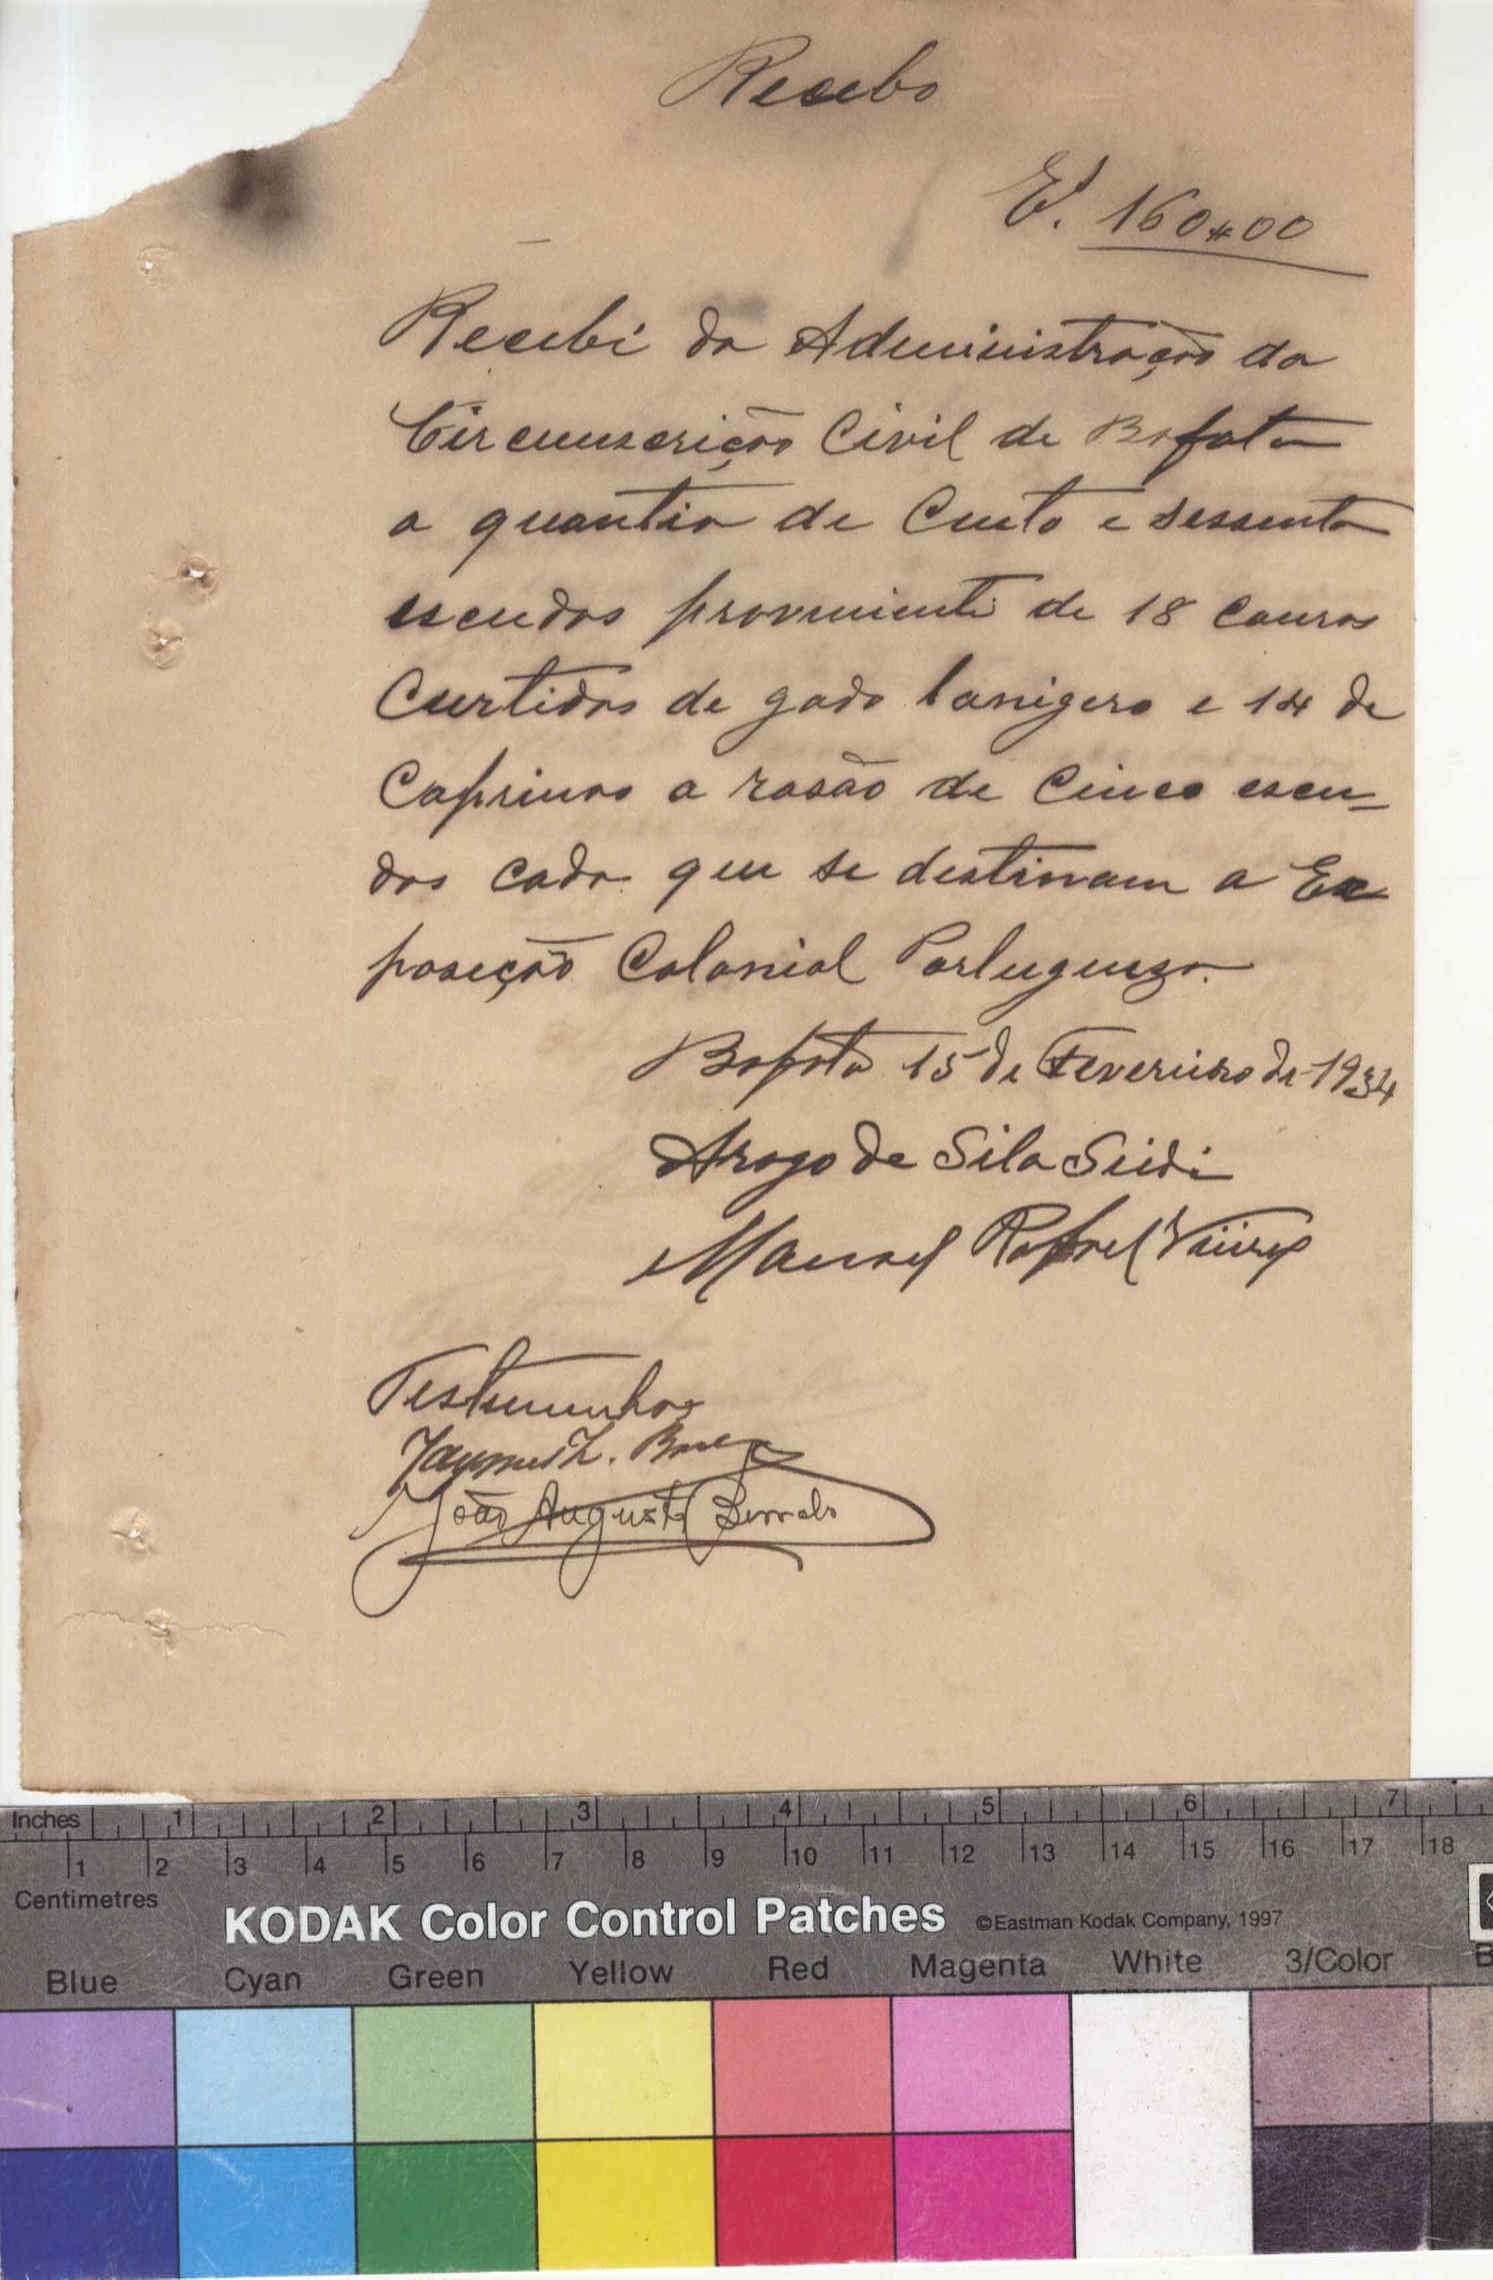 Recebo
E. 160$00
Recebi da Administração da
Circunscrição Civil de Bafata
a quantia de Cento e sessenta
escudos proveniente de 18 couros
Curtidos de gado lanigero e 14 de
Caprinos a rasão de Cinco escu-
dos cada que se destinam a Ex
posição Colonial Portugueza.
Bafata 15 de Fevereiro de 1934
Arogo de Sila Seidi
Manoel Rafael
Testemunhas
João Augusto
Inches 1 2 3 4 5 6 7
1 2 3 4 5 6 7 8 9 10 11 12 13 14 15 16 17 18
Centimetres
KODAK Color Control Patches ©Eastman Kodak Company, 1997
Blue Cyan Green Yellow Red Magenta White 3/Color B